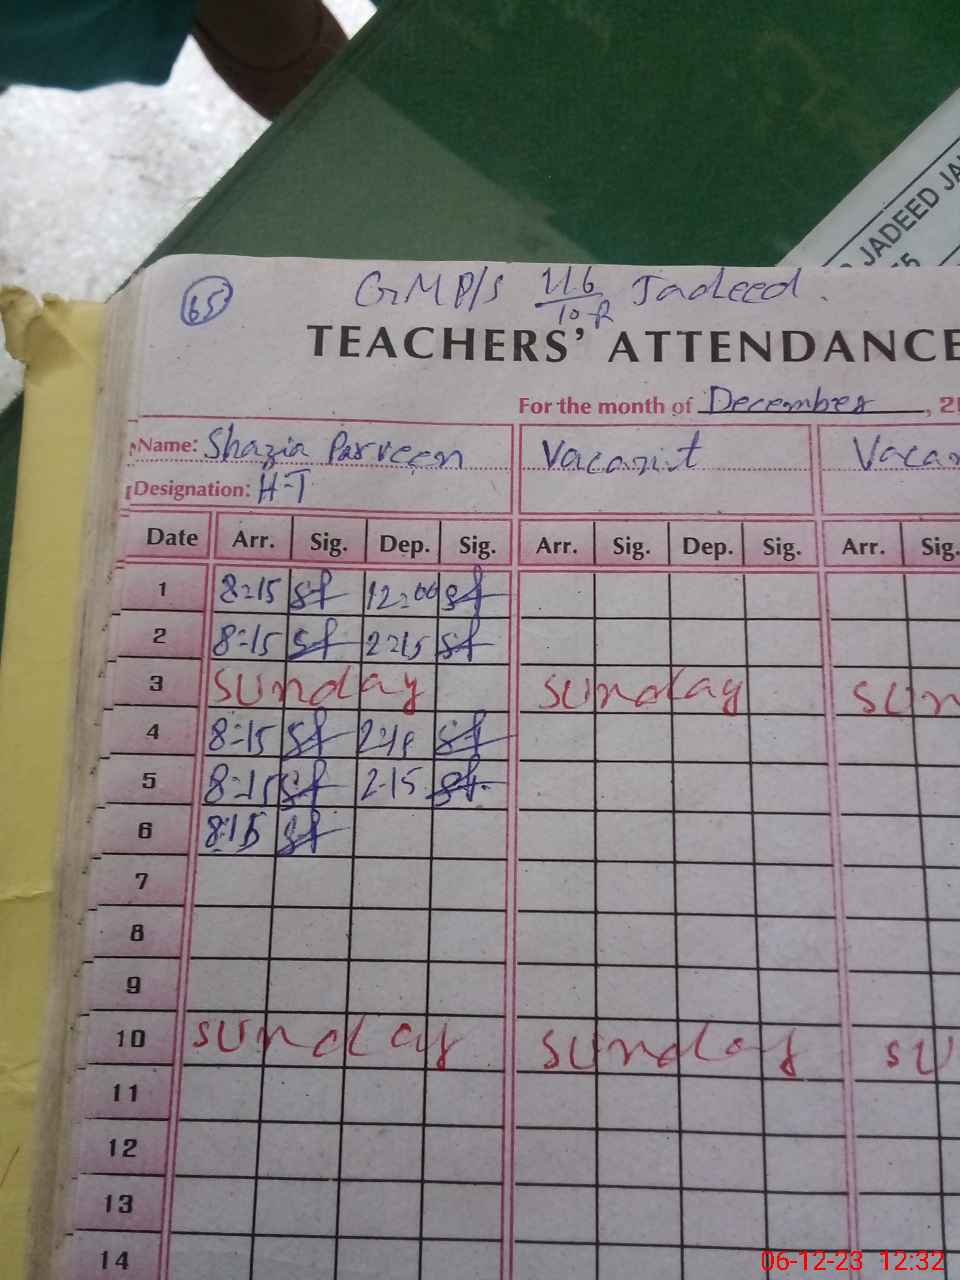 JADEED JA
65
GMP/S 116/10-R Jadeed.
TEACHERS' ATTENDANCE
For the month of December, 2
Name: Shazia Parveen Vacant Vaca
Designation: H-T
Date Arr. Sig. Dep. Sig. Arr. Sig. Dep. Sig. Arr. Sig.
1 8:15 12:00
2 8:15 2:15
3 Sunday Sunday Sun
4 8:15
5 8:15 2:15
6 8:15
7
8
9
10 Sunday Sunday Su
11
12
13
14
06-12-23 12:32